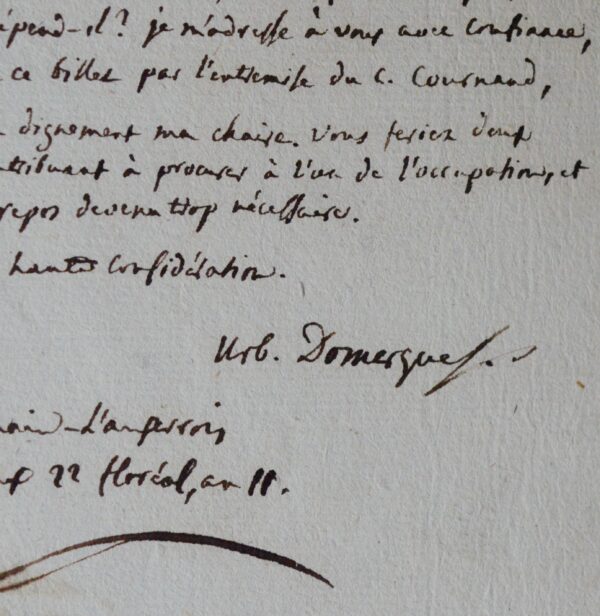 épend-il? je m'adresse à vous avec confiance,
ce billet par l'entremise du C. Cournand,
dignement ma chaire. Vous feriez donc
ttribuant à procurer à l'un de l'occupation, et
repos devenu trop nécessaire.
haute Considération.
Urb. Domergue
main-L'auxerrois
22 floréal, an 11.